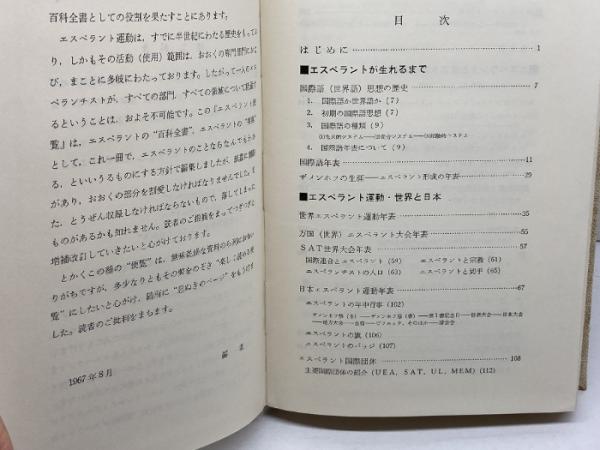 百科全書としての役割を果たすことにあります。
エスペラント運動は、すでに半世紀にわたる歴史をもってお
り、しかもその活動（使用）範囲は、おおくの専門部門におよ
び、まことに多岐にわたっております。したがって一人のエス
ペランチストが、すべての部門、すべての領域について
るということは、およそ不可能です。この『エスペラント便
覧』は、エスペラントの“百科全書”、エスペラントの
として、これ一冊で、エスペラントのことならなんでもわか
る、といいうるものにする方針で編集しましたが、紙数に
があり、おおくの部分を割愛しなければなりませんでした。
た、とうぜん収録しなければならないもので、落してしまった
ものがあるかも知れません。読者のご指摘をまってつぎつぎに
増補改訂していきたいと心がけております。
とかくこの種の“便覧”は、無味乾燥な資料の羅列に
りがちですが、多少なりともその弊をのぞき“楽しく読める便
覧”にしたいと心がけ、随所に“息ぬきのページ”をもうけま
した。読者のご批判をまちます。
1967年8月
編者
目次
はじめに 1
■エスペラントが生れるまで
国際語（世界語）思想の歴史 7
1. 国際語か世界語か（7）
2. 初期の国際語思想（7）
3. 国際語の種類（9）
4. 国際語年表について（9）
国際語年表 11
ザメンホフの生涯——エスペラント形成の年表 29
■エスペラント運動・世界と日本
世界エスペラント運動年表 35
万国（世界）エスペラント大会年表 55
SAT世界大会年表 57
国際連合とエスペラント（59） エスペラントと宗教（61）
エスペランチストの人口（63） エスペラントと切手（65）
日本エスペラント運動年表 67
エスペラントの年中行事（102）
エスペラントの旗（106）
エスペラントのバッジ（107）
エスペラント国際団体 108
主要国際団体の紹介（UEA, SAT, UL, MEM）（112）